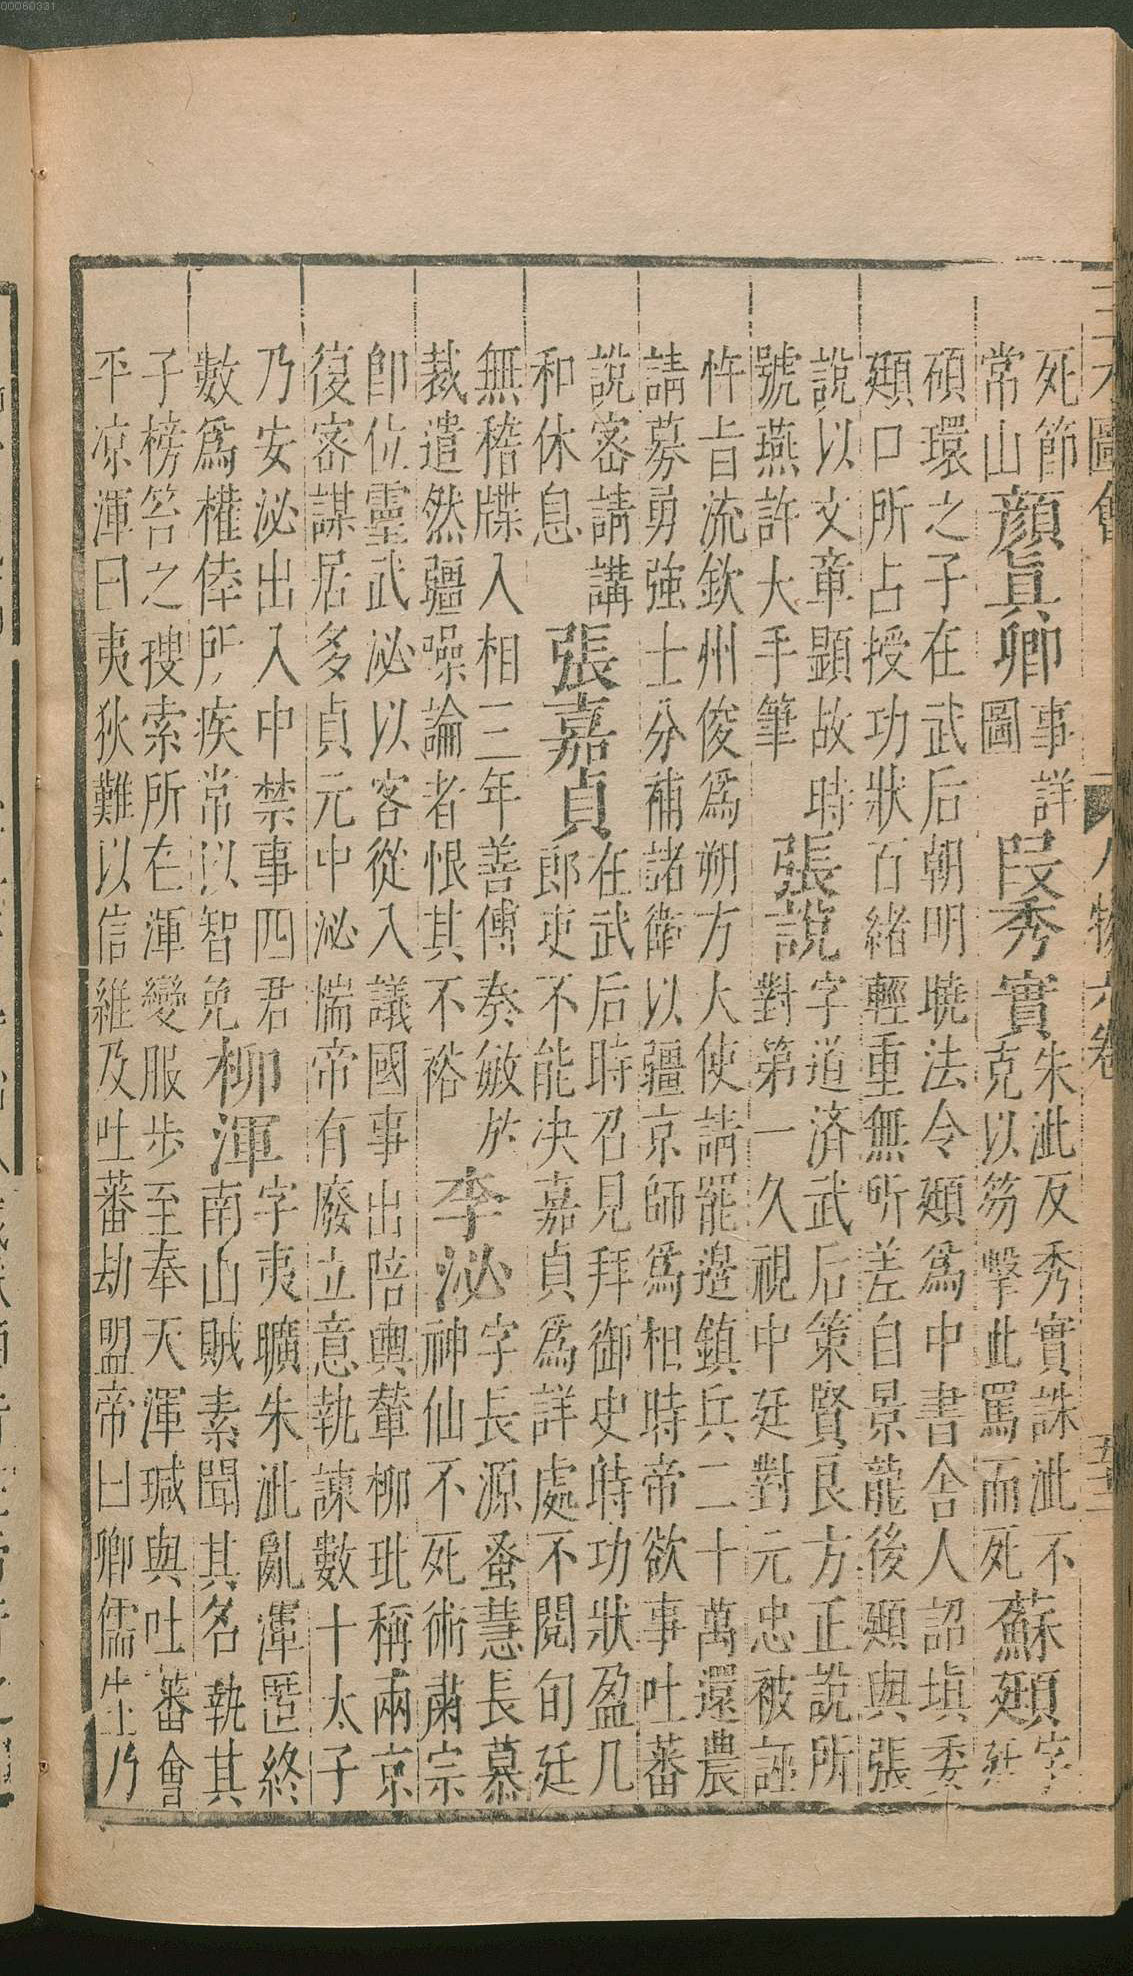 三才圖會
人物六卷
五三
死節
常山
顏眞卿
事詳
圖
段秀實
朱泚反秀實誅泚不
克以笏擊泚罵而死
蘇頲
字
廷
碩環之子在武后朝明曉法令頲爲中書舍人詔填委
頲口所占授功狀百緒輕重無所差自景龍後頲與張
說以文章顯故時
號燕許大手筆
張說
字道済武后策賢良方正說所
對第一久視中廷對元忠被誣
忤旨流欽州俊爲朔方大使請罷邉鎮兵二十萬還農
請募勇強士分補諸衛以疆京師爲相時帝欲事吐蕃
說密請講
和休息
張嘉貞
在武后時召見拜御史時功狀盈几
郎吏不能决嘉貞爲詳處不閱旬廷
無稽牒入相三年善傅奏敏於
裁遣然疆噪論者恨其不裕
李泌
字長源蚤慧長慕
神仙不死術肅宗
卽位靈武泌以客從入議國事出陪輿輦柳玭稱兩京
復密謀居多貞元中泌惴帝有廢立意執諫數十太子
乃安泌出入中禁事四君
數爲權倖所疾常以智免
柳渾
字夷曠朱泚亂渾匿終
南山賊素聞其名執其
子榜笞之搜索所在渾變服步至奉天渾瑊與吐蕃會
平凉渾曰夷狄難以信維及吐蕃劫盟帝曰卿儒生乃